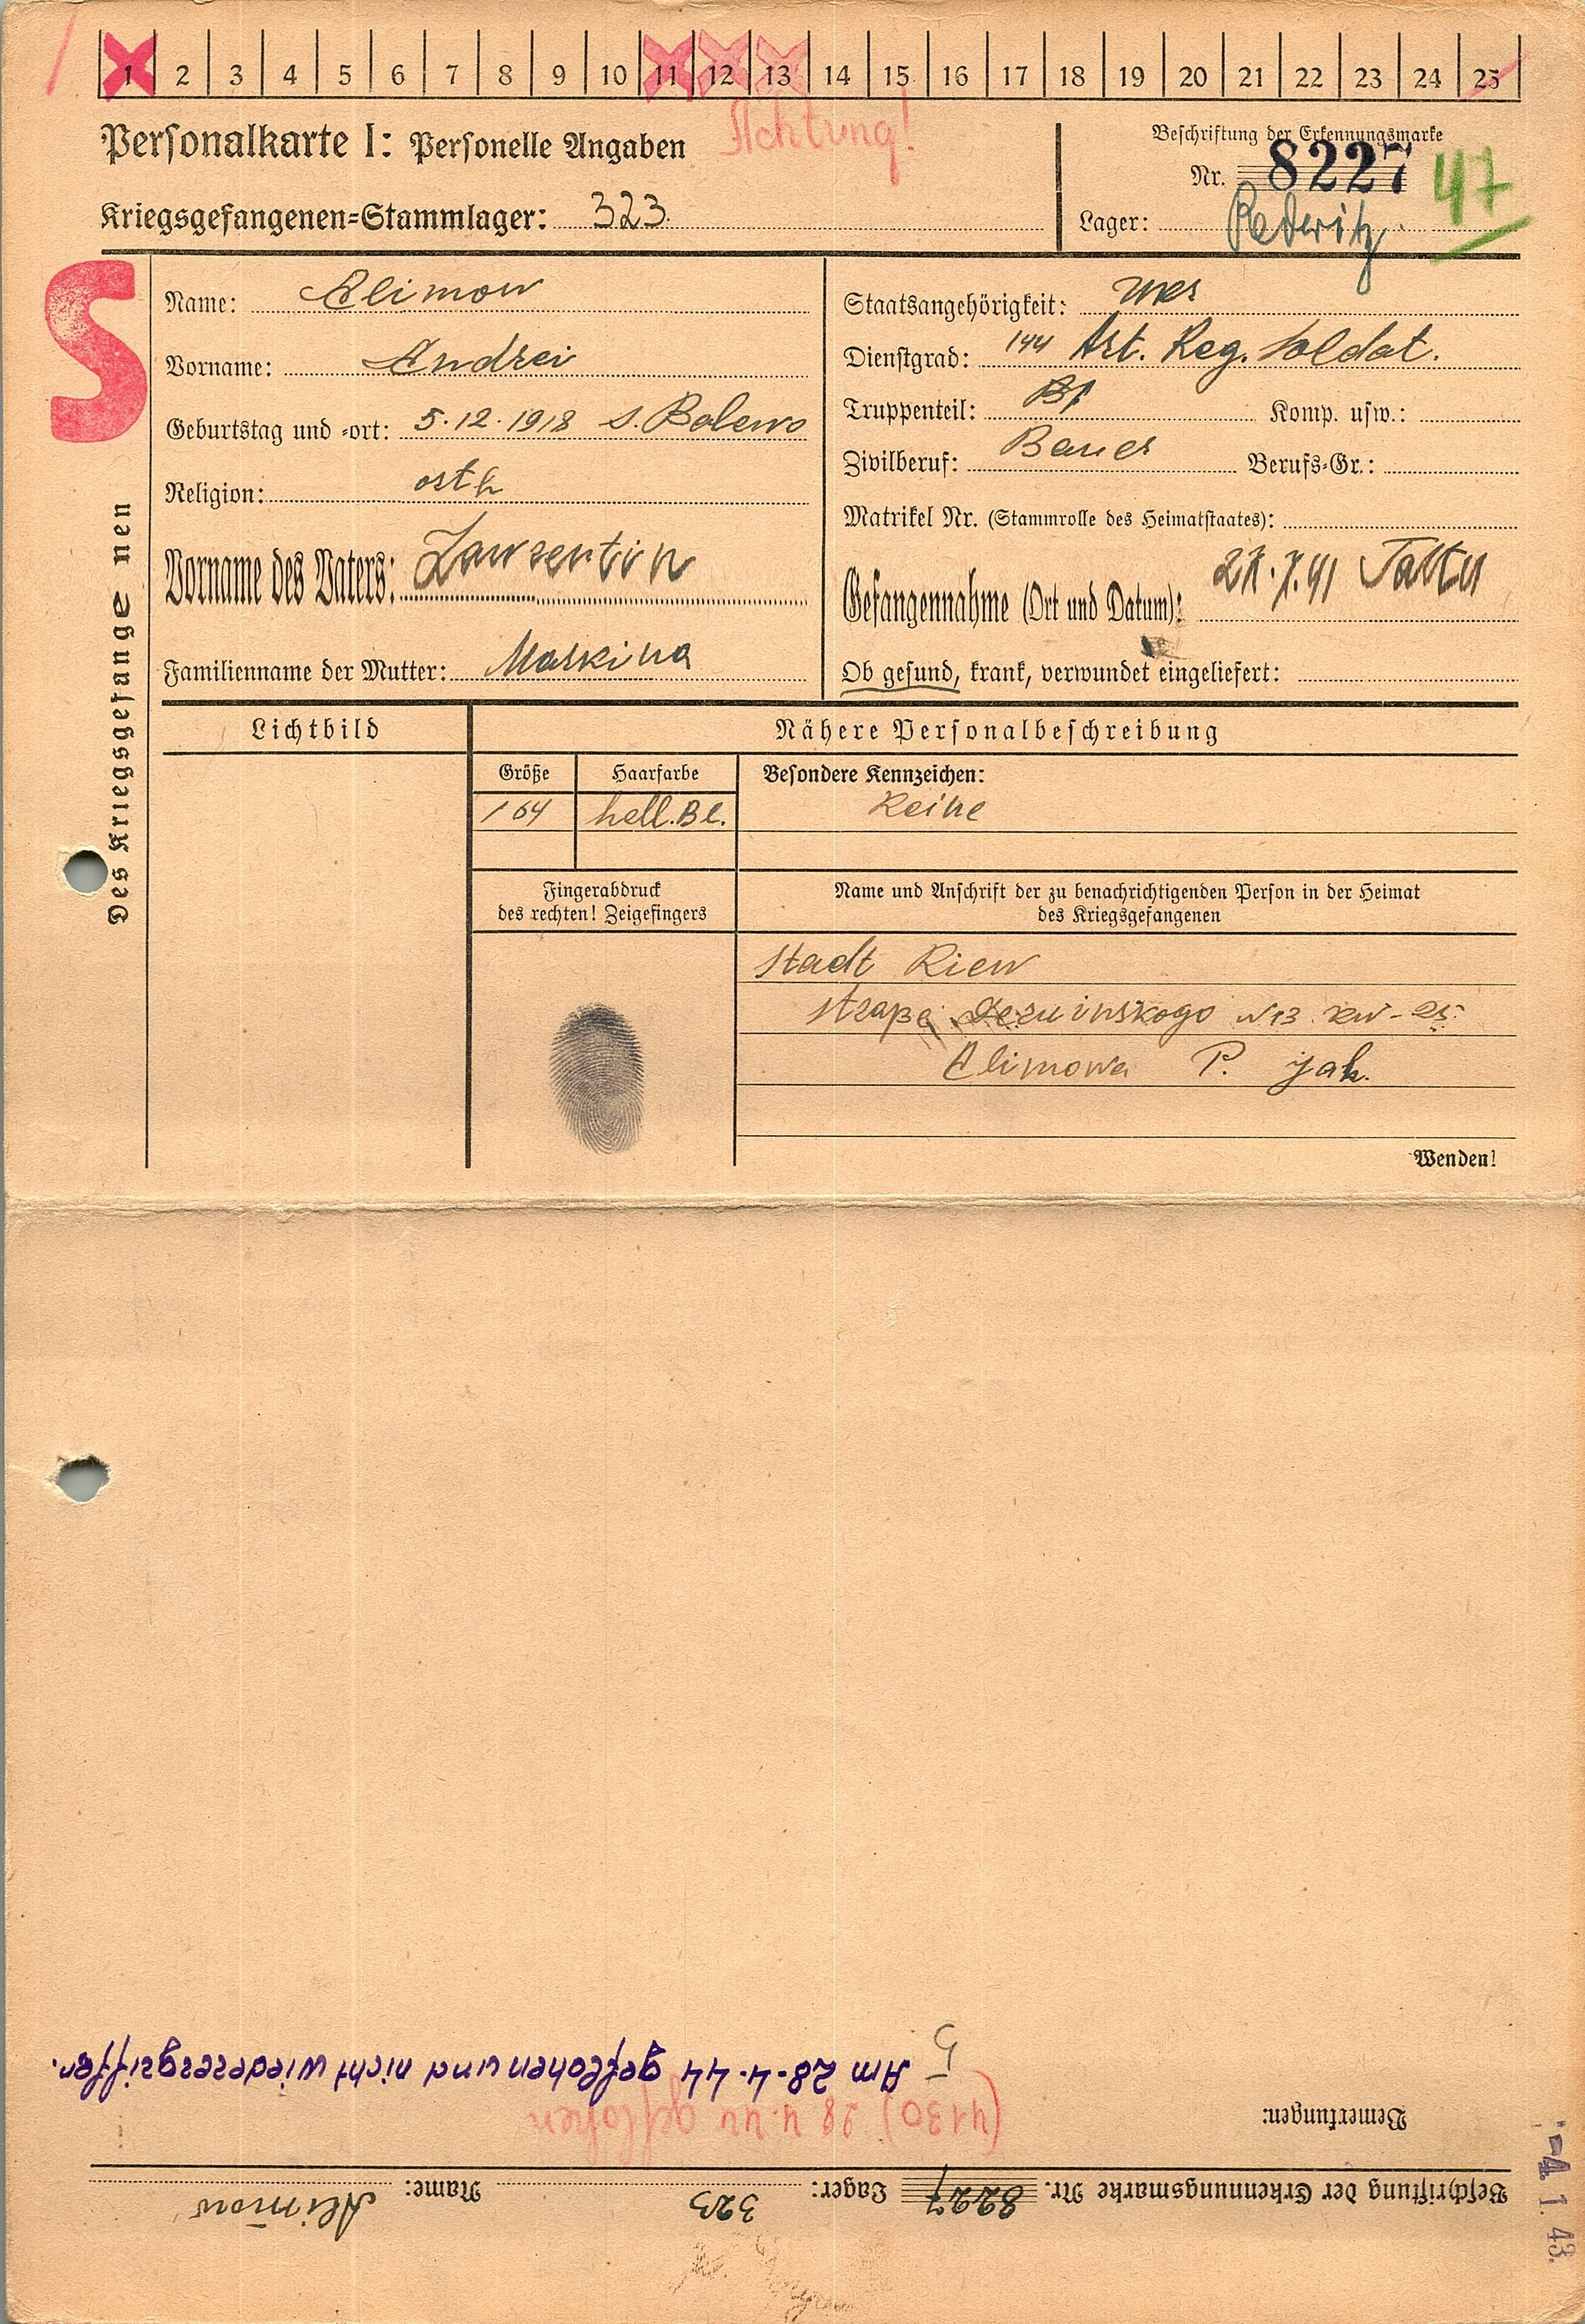 1 2 3 4 5 6 7 8 9 10 11 12 13 14 15 16 17 18 19 20 21 22 23 24 25
Personalkarte I: Personelle Angaben
Achtung!
Kriegsgefangenen-Stammlager: 323.
Beschriftung der Erkennungsmarke
Nr. 8227
47
Lager: Rederitz
S
Des Kriegsgefangenen
Name: Alimow
Vorname: Andrei
Geburtstag und -ort: 5.12.1918 s. Balewo
Religion: orth
Vorname des Vaters: Lawrentin
Familienname der Mutter: Maskina
Staatsangehörigkeit:
Dienstgrad: 144 Art. Reg. Soldat.
Truppenteil:
Komp. usw.:
Zivilberuf: Bauer
Berufs-Gr.:
Matrikel Nr. (Stammrolle des Heimatstaates):
Gefangennahme (Ort und Datum):
Ob gesund, krank, verwundet eingeliefert:
Lichtbild
Nähere Personalbeschreibung
Größe
Haarfarbe
Besondere Kennzeichen:
164
hell.Bl.
Keine
Fingerabdruck
des rechten! Zeigefingers
Name und Anschrift der zu benachrichtigenden Person in der Heimat
des Kriegsgefangenen
Stadt Kiew
N 13 kw-25
Alimowa P. Jak.
Wenden!
Beschriftung der Erkennungsmarke Nr. 8227 Lager: 323 Name: Alimow
Bemerkungen:
(4130) 28 4.44 geflohen
Am 28.4.44 geflohen und nicht wiederergriffen.
5
-4. 1. 43.